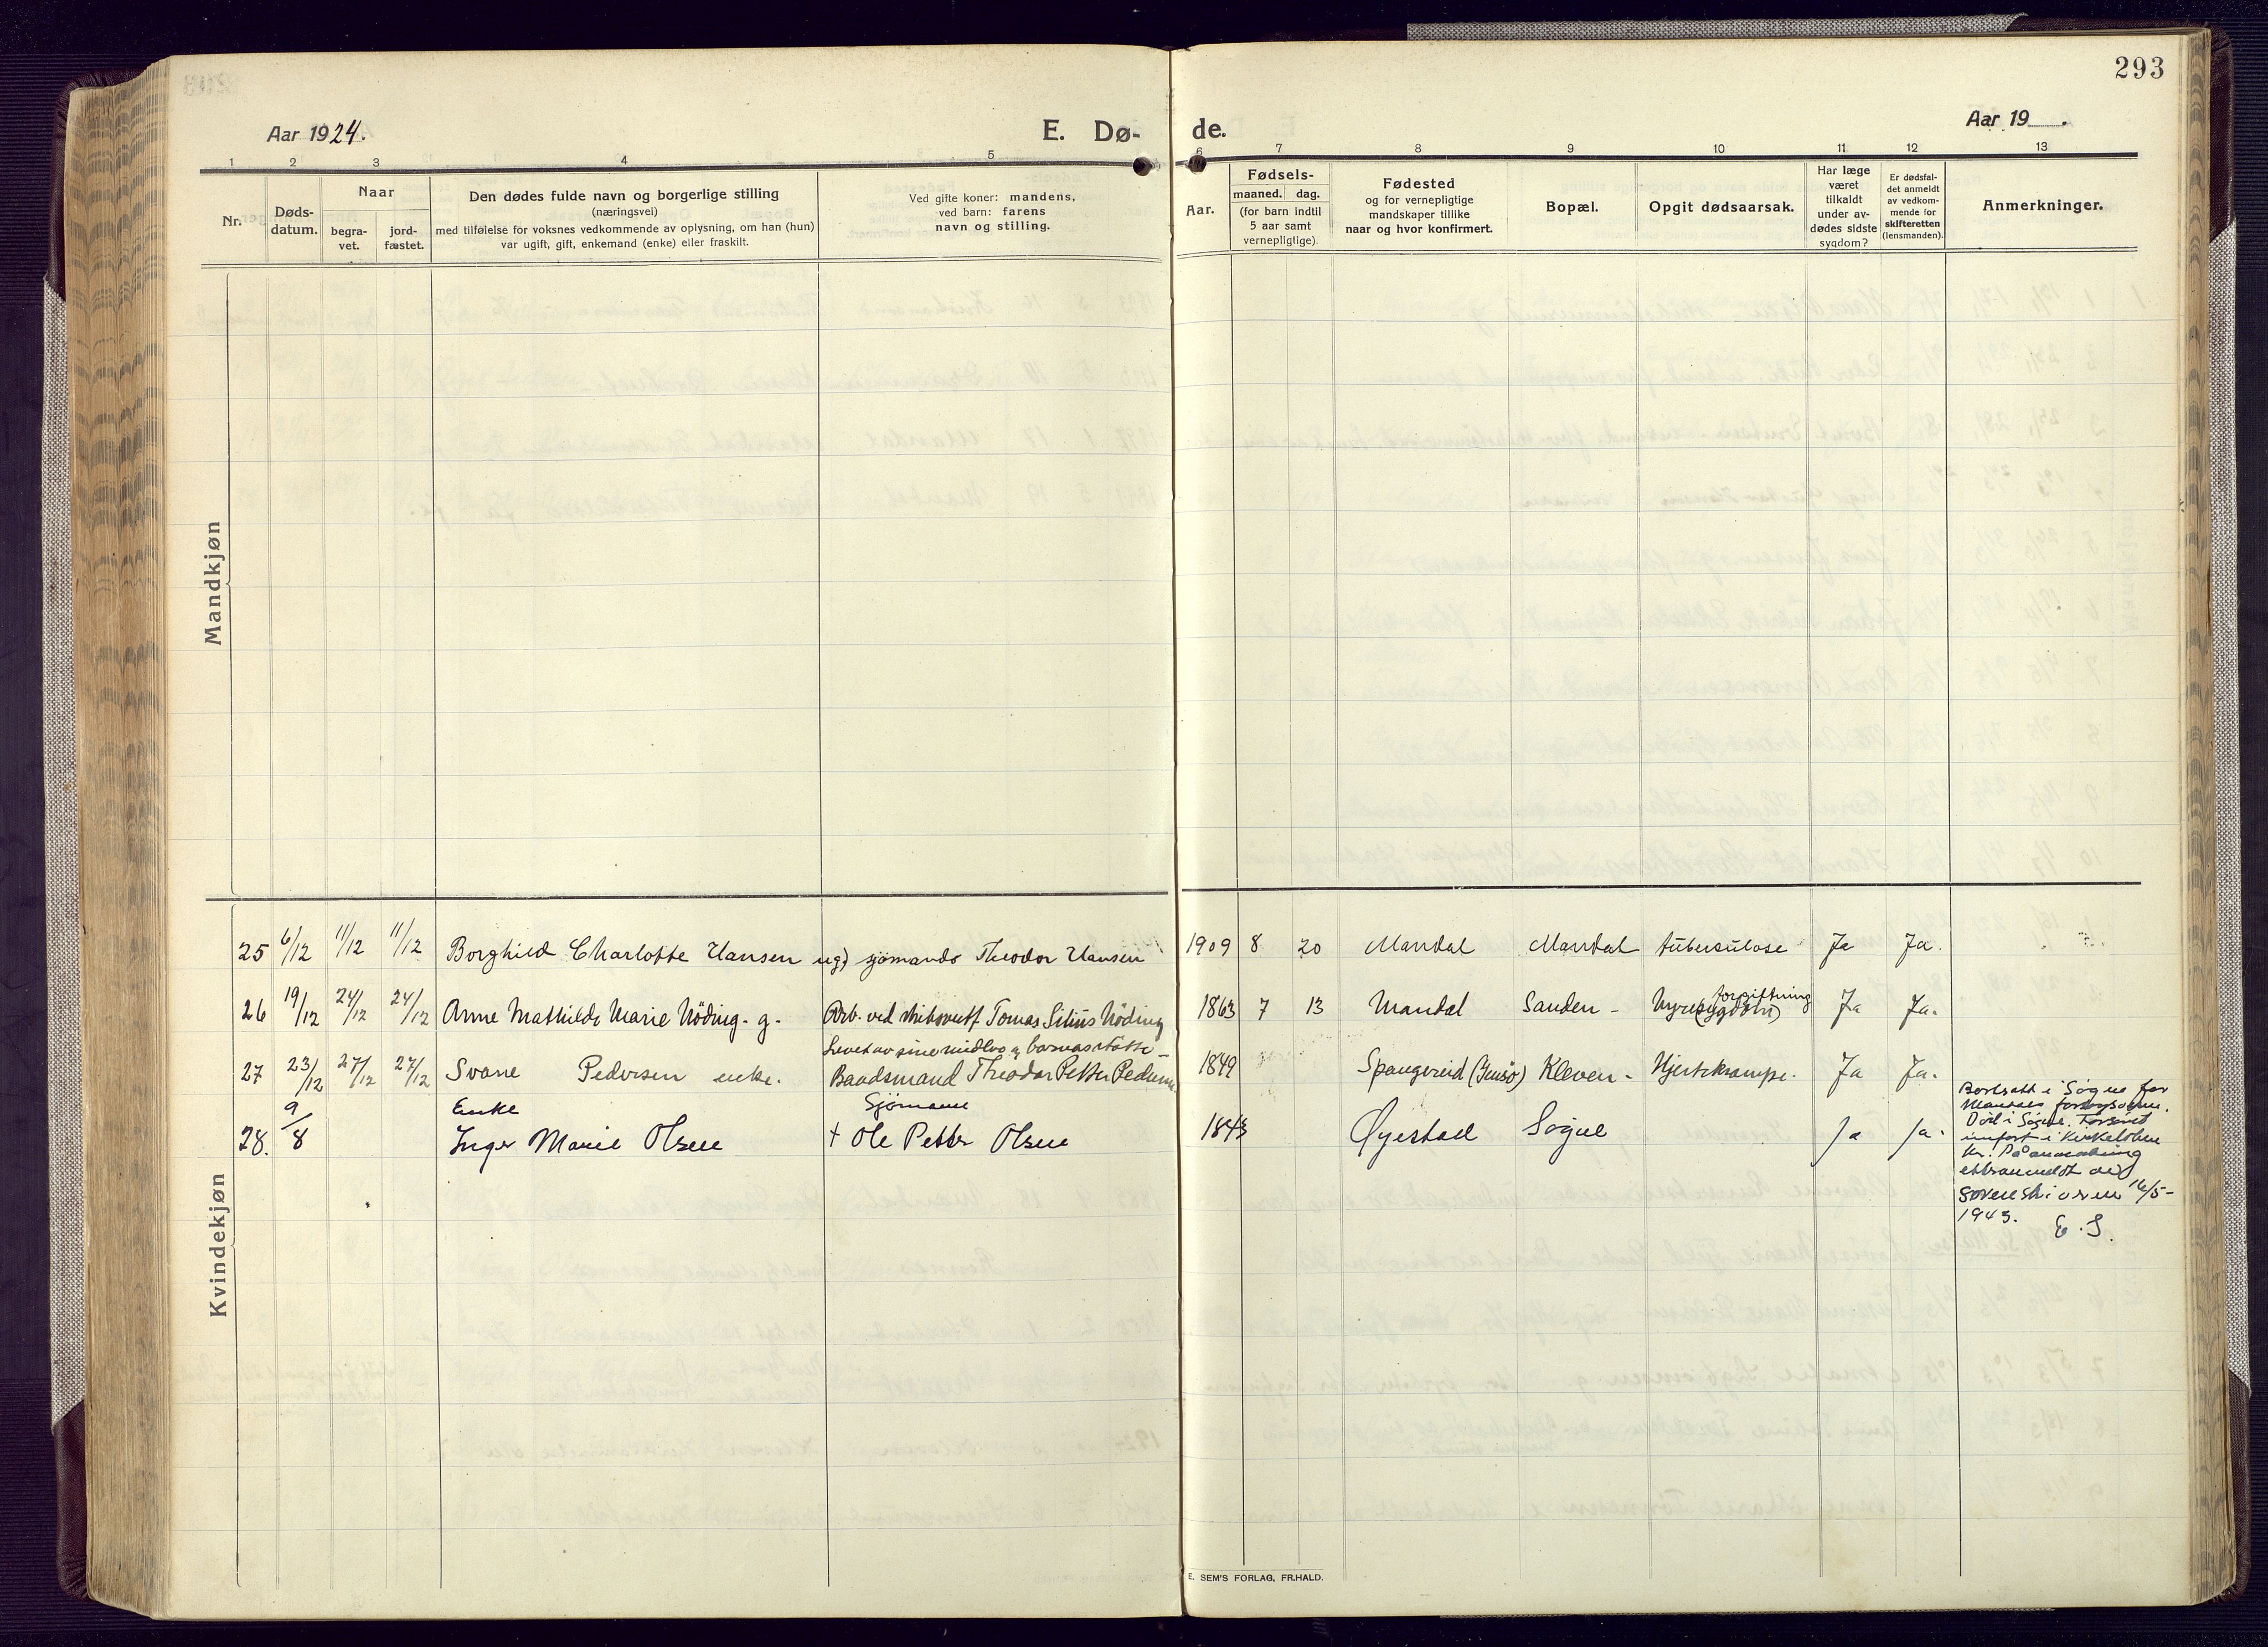 293
Aar 1924.
E. Dø-
de.
Aar 19
1 2 3 4 5 6 7 8 9 10 11 12 13
Nr.
Døds-
datum.
Naar
begra-
vet.
jord-
fæstet.
Den dødes fulde navn og borgerlige stilling
(næringsvei)
med tilføielse for voksnes vedkommende av oplysning, om han (hun)
var ugift, gift, enkemand (enke) eller fraskilt.
Ved gifte koner: mandens,
ved barn: farens
navn og stilling.
Aar.
Fødsels-
maaned. dag.
(for barn indtil
5 aar samt
vernepligtige).
Fødested
og for vernepligtige
mandskaper tillike
naar og hvor konfirmert.
Bopæl.
Opgit dødsaarsak.
Har læge
været
tilkaldt
under av-
dødes sidste
sygdom?
Er dødsfal-
det anmeldt
av vedkom-
mende for
skifteretten
(lensmanden).
Anmerkninger.
Mandkjøn
Kvindekjøn
25 6/12 11/12 11/12 Borghild Charlotte Hansen ug) sjömands Theodor Hansen 1909 8 20 Mandal Mandal tuberculose Ja Ja.
26 19/12 24/12 24/12 Anne Mathilde Marie Nöding - g. Arb. ved Tomas Nöding 1863 7 13 Mandal Sanden - Nyre(sygdom) forgiftning Ja Ja.
Levet av sine midler og barnas støtte -
27 23/12 27/12 27/12 Svane Pedersen enke. Baadsmand Theodor Petter Pedersen 1849 Spangereid Kleven - Hjertekrampe. Ja Ja.
Enke Sjömann
28. 9/8 Inger Marie Olsen † Ole Petter Olsen 1843 Øyestad Sögne Ja Ja.
Bortsatt i Sögne for
Mandals forsorgsvesen.
Död i Sögne.
innfört i kirkeboken
her. På anmodning
av
soreneskriveren 16/5-
1943. E. S.
E. SEM'S FORLAG, FR.HALD.